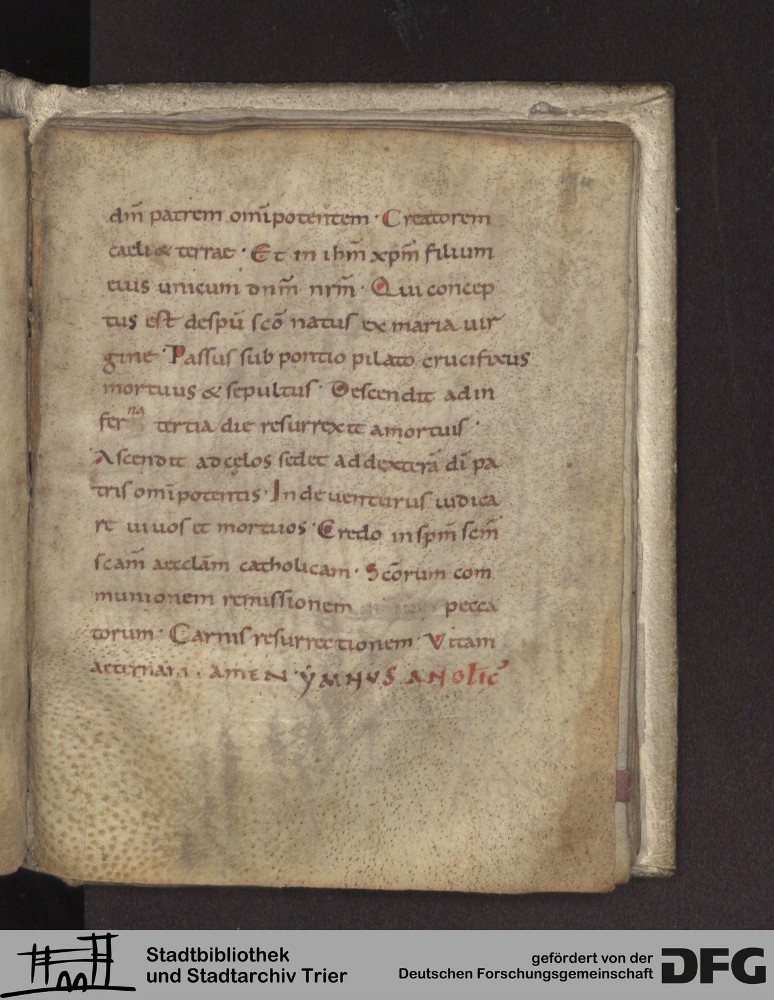 dm̄ patrem om̄ipotentem · Creatorem
caeli & terrae · Et in ihm̄ xpm̄ filium
eius unicum dnm̄ nrm̄ · Qui concep
tus est despū scō natus ex maria uir
gine · Passus sub pontio pilato crucifixus
mortuus & sepultus · Descendit ad in
fer na tertia die resurrexit a mortuis ·
Ascendit ad cęlos sedet ad dexterā dī pa
tris om̄ipotentis · Inde uenturus iudica
re uiuos et mortuos · Credo in spm̄ scm̄
scam̄ aecclām catholicam · Scōrum com
munionem remissionem pecca
torum · Carnis resurrectionem · Vitam
aeternam . AMEN · YMNUS
Stadtbibliothek
und Stadtarchiv Trier
gefördert von der
Deutschen Forschungsgemeinschaft
DFG